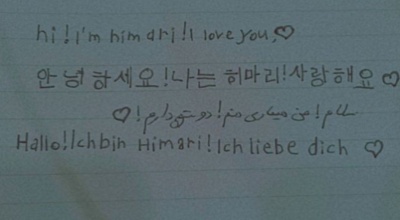 hi!I'm himari!I love you,♡
안녕하세요!나는 히마리!사랑해요♡
سلام!من هیماری منم!دوستون دارم!♡
Hallo!Ichbin Himari!Ich liebe dich ♡